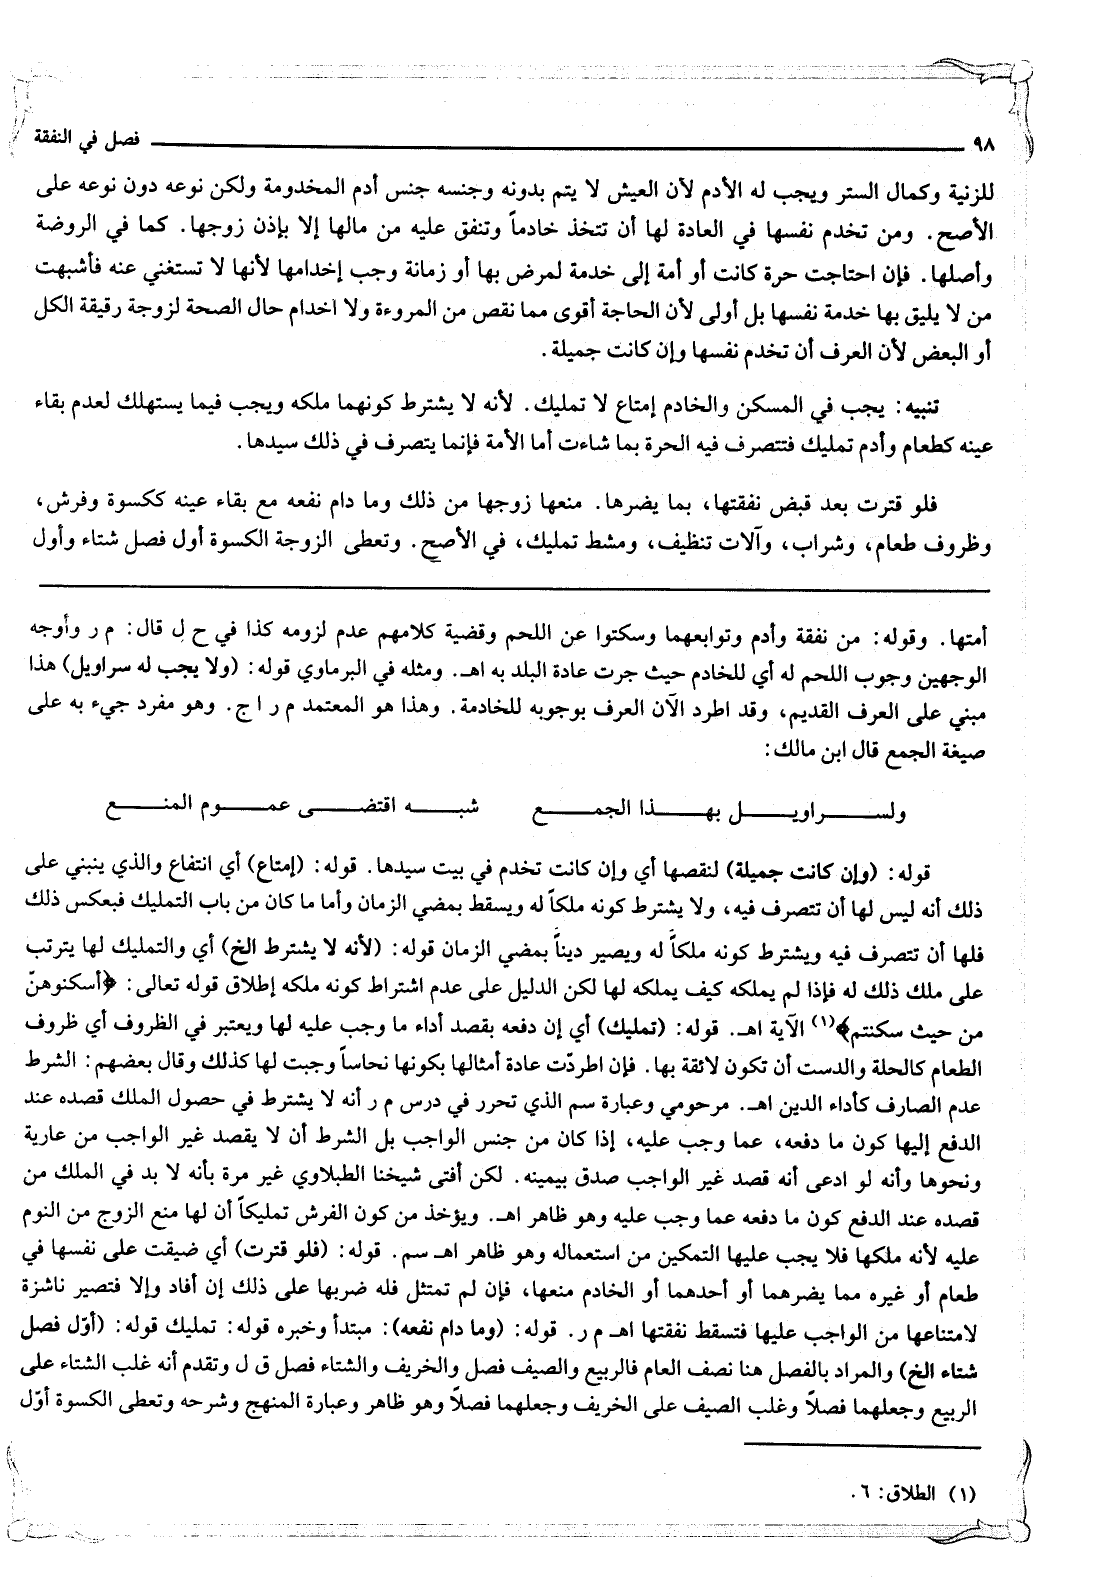 ٩٨ فصل في النفقة
للزنية وكمال الستر ويجب له الأدم لأن العيش لا يتم بدونه وجنسه جنس أدم المخدومة ولكن نوعه دون نوعه على
الأصح. ومن تخدم نفسها في العادة لها أن تتخذ خادماً وتنفق عليه من مالها إلا بإذن زوجها. كما في الروضة
وأصلها. فإن احتاجت حرة كانت أو أمة إلى خدمة لمرض بها أو زمانة وجب إخدامها لأنها لا تستغني عنه فأشبهت
من لا يليق بها خدمة نفسها بل أولى لأن الحاجة أقوى مما نقص من المروءة ولا اخدام حال الصحة لزوجة رقيقة الكل
أو البعض لأن العرف أن تخدم نفسها وإن كانت جميلة.
تنبيه: يجب في المسكن والخادم إمتاع لا تمليك. لأنه لا يشترط كونهما ملكه ويجب فيما يستهلك لعدم بقاء
عينه كطعام وأدم تمليك فتتصرف فيه الحرة بما شاءت أما الأمة فإنما يتصرف في ذلك سيدها.
فلو قترت بعد قبض نفقتها، بما يضرها. منعها زوجها من ذلك وما دام نفعه مع بقاء عينه ككسوة وفرش،
وظروف طعام، وشراب، وآلات تنظيف، ومشط تمليك، في الأصح. وتعطى الزوجة الكسوة أول فصل شتاء وأول
أمتها. وقوله: من نفقة وأدم وتوابعهما وسكتوا عن اللحم وقضية كلامهم عدم لزومه كذا في ح ل قال: م ر وأوجه
الوجهين وجوب اللحم له أي للخادم حيث جرت عادة البلد به اهـ. ومثله في البرماوي قوله: (ولا يجب له سراويل) هذا
مبني على العرف القديم، وقد اطرد الآن العرف بوجوبه للخادمة. وهذا هو المعتمد م ر ا ج. وهو مفرد جيء به على
صيغة الجمع قال ابن مالك:
ولســراويــل بهــذا الجمــع شبــه اقتضــى عمــوم المنــع
قوله: (وإن كانت جميلة) لنقصها أي وإن كانت تخدم في بيت سيدها. قوله: (إمتاع) أي انتفاع والذي ينبني على
ذلك أنه ليس لها أن تتصرف فيه، ولا يشترط كونه ملكاً له ويسقط بمضي الزمان وأما ما كان من باب التمليك فبعكس ذلك
فلها أن تتصرف فيه ويشترط كونه ملكاً له ويصير ديناً بمضي الزمان قوله: (لأنه لا يشترط الخ) أي والتمليك لها يترتب
على ملك ذلك له فإذا لم يملكه كيف يملكه لها لكن الدليل على عدم اشتراط كونه ملكه إطلاق قوله تعالى: ﴿أسكنوهنّ
من حيث سكنتم﴾(١) الآية اهـ. قوله: (تمليك) أي إن دفعه بقصد أداء ما وجب عليه لها ويعتبر في الظروف أي ظروف
الطعام كالحلة والدست أن تكون لائقة بها. فإن اطردّت عادة أمثالها بكونها نحاساً وجبت لها كذلك وقال بعضهم: الشرط
عدم الصارف كأداء الدين اهـ. مرحومي وعبارة سم الذي تحرر في درس م ر أنه لا يشترط في حصول الملك قصده عند
الدفع إليها كون ما دفعه، عما وجب عليه، إذا كان من جنس الواجب بل الشرط أن لا يقصد غير الواجب من عارية
ونحوها وأنه لو ادعى أنه قصد غير الواجب صدق بيمينه. لكن أفتى شيخنا الطبلاوي غير مرة بأنه لا بد في الملك من
قصده عند الدفع كون ما دفعه عما وجب عليه وهو ظاهر اهـ. ويؤخذ من كون الفرش تمليكاً أن لها منع الزوج من النوم
عليه لأنه ملكها فلا يجب عليها التمكين من استعماله وهو ظاهر اهـ سم. قوله: (فلو قترت) أي ضيقت على نفسها في
طعام أو غيره مما يضرهما أو أحدهما أو الخادم منعها، فإن لم تمتثل فله ضربها على ذلك إن أفاد وإلا فتصير ناشزة
لامتناعها من الواجب عليها فتسقط نفقتها اهـ م ر. قوله: (وما دام نفعه): مبتدأ وخبره قوله: تمليك قوله: (أوّل فصل
شتاء الخ) والمراد بالفصل هنا نصف العام فالربيع والصيف فصل والخريف والشتاء فصل ق ل وتقدم أنه غلب الشتاء على
الربيع وجعلهما فصلاً وغلب الصيف على الخريف وجعلهما فصلاً وهو ظاهر وعبارة المنهج وشرحه وتعطى الكسوة أوّل
(١) الطلاق: ٦.